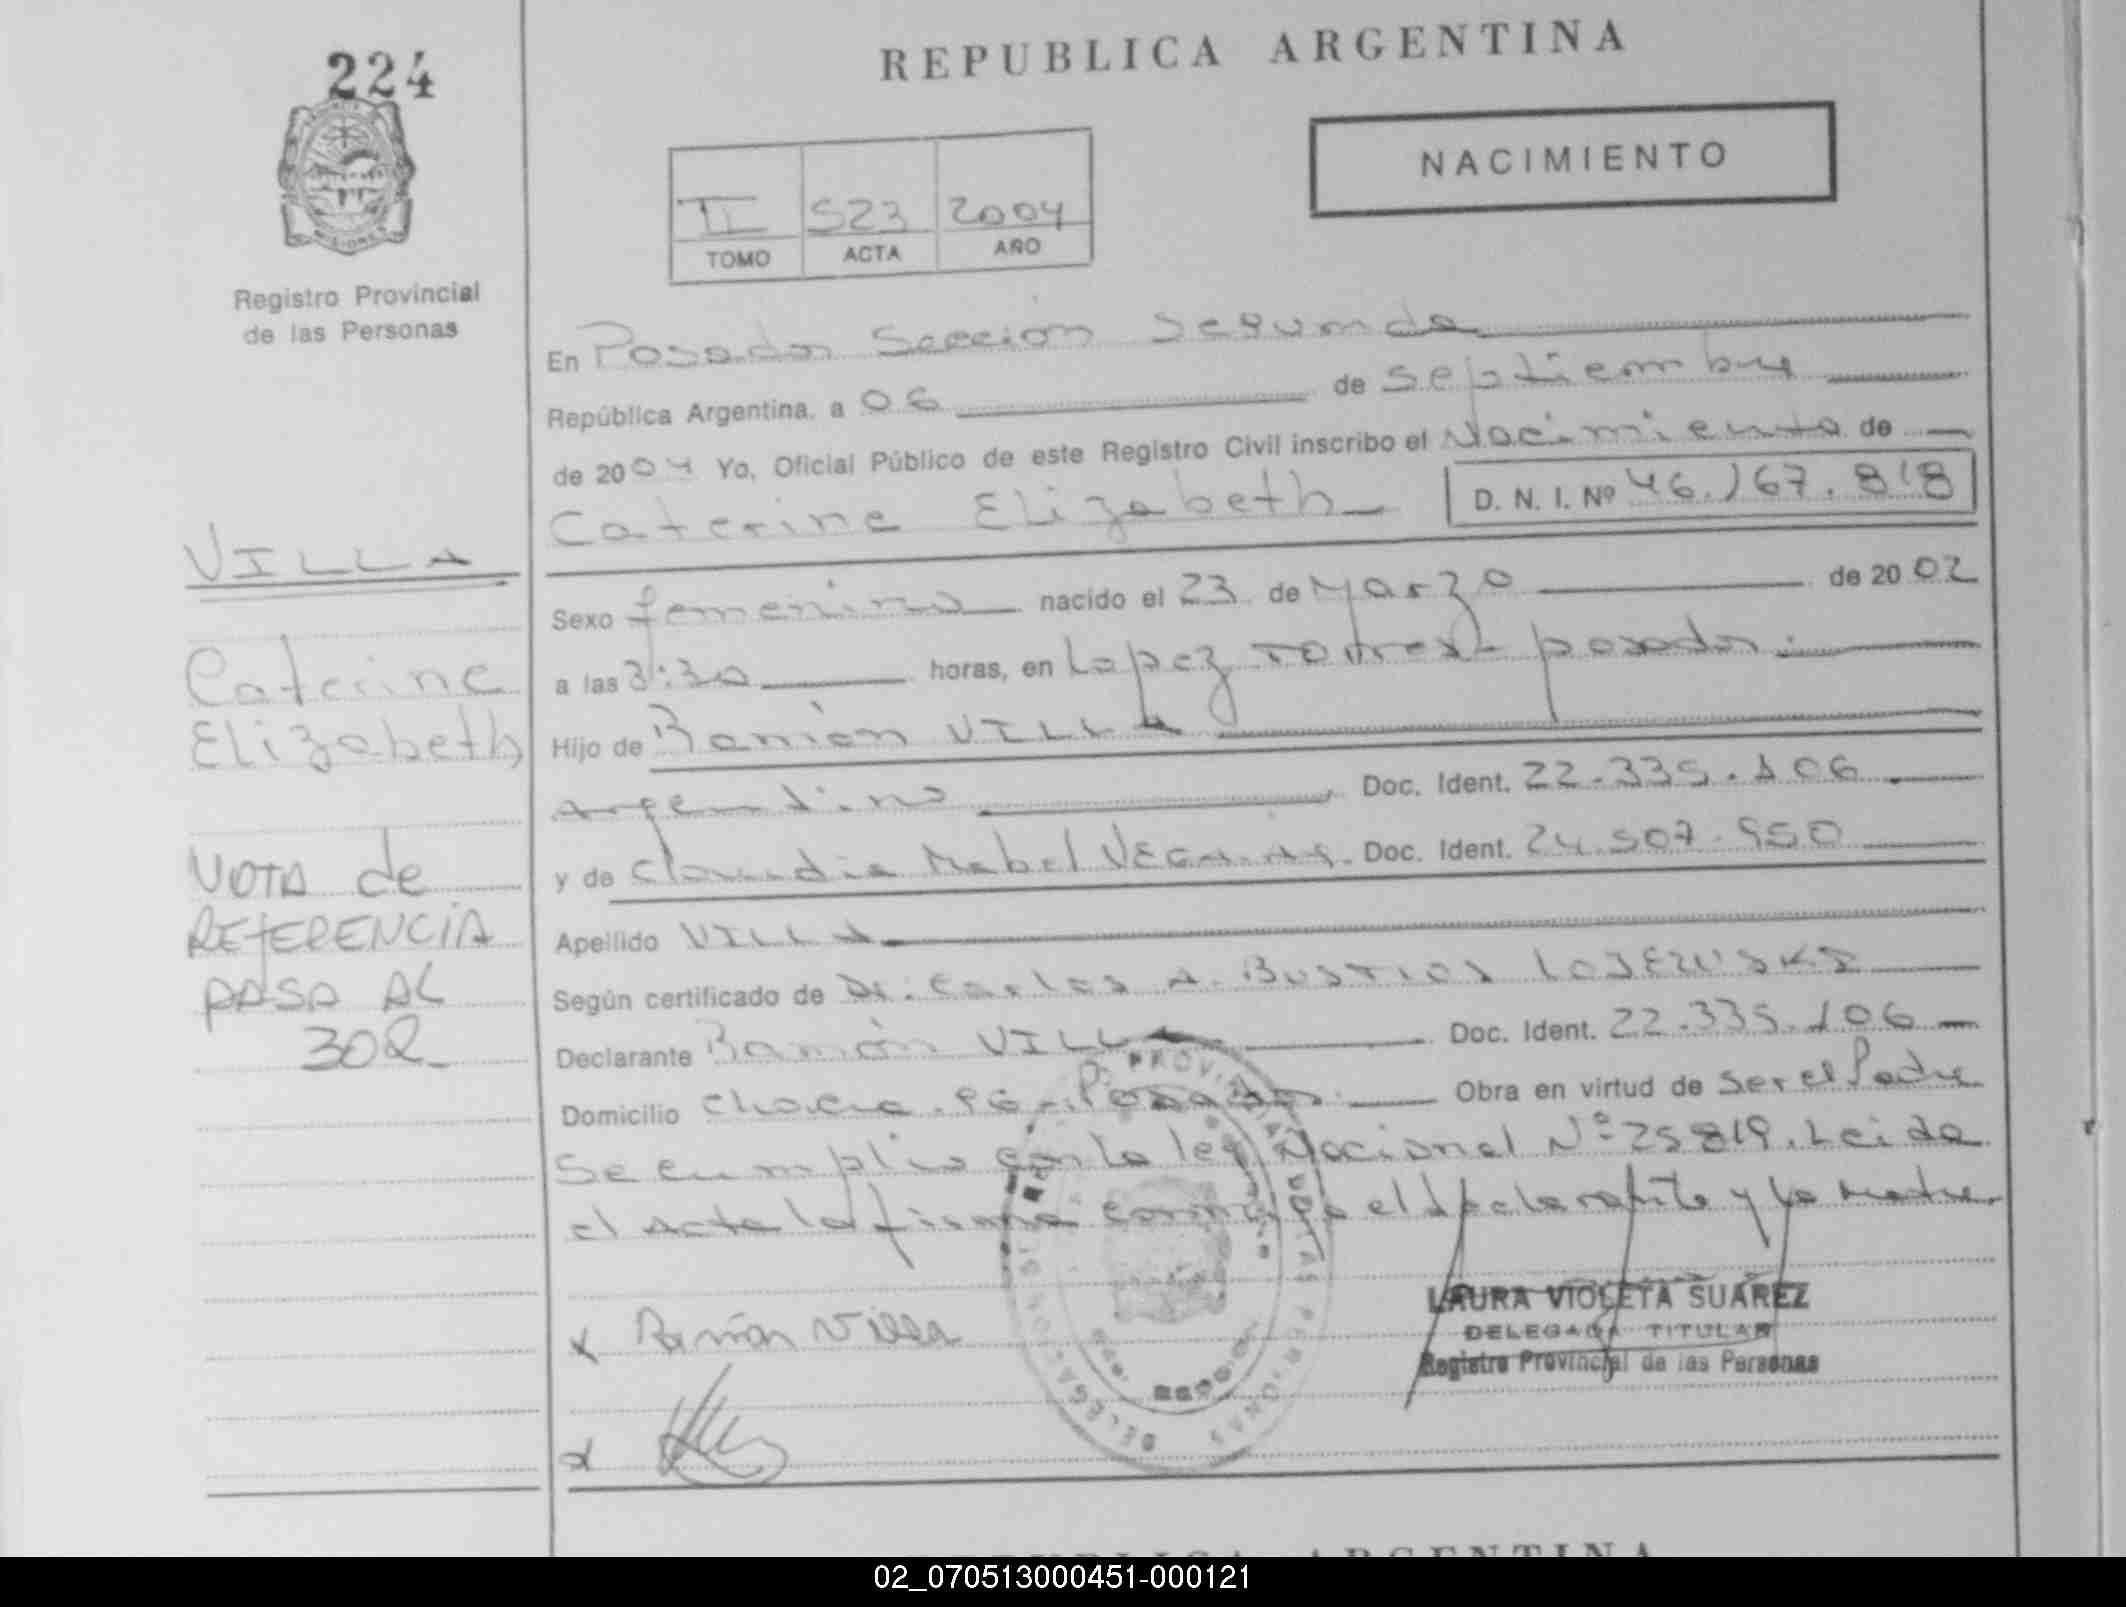 224
REPUBLICA ARGENTINA
NACIMIENTO
II 523 2004
TOMO ACTA AÑO
MISIONES
Registro Provincial
de las Personas
En Posadas Sección Segunda
República Argentina, a 06 de Septiembre
de 2004 Yo, Oficial Público de este Registro Civil inscribo el Nacimiento de
Caterine Elizabeth D. N. I. Nº 46.167.818
VILLA
Caterine
Elizabeth
Sexo femenino nacido el 23 de Marzo de 2002
a las 3:30 horas, en Lopez Torres - posadas
Hijo de Ramón VILLA
Argentino Doc. Ident. 22.335.106
y de Claudia Mabel Doc. Ident. 24.507.950
Apellido VILLA
Según certificado de Dr. Carlos A. Bustos
Declarante Ramón VILLA Doc. Ident. 22.335.106
Domicilio chacra. 96 - Posadas Obra en virtud de ser el Padre
Se cumplio con la ley Nacional Nº 25819. Leida
el Acta la firma conmigo el declarante y la Madre
NOTA de
REFERENCIA
PASA AL
302
x Ramón Villa
x
LAURA VIOLETA SUAREZ
DELEGADA TITULAR
Registro Provincial de las Personas
REPUBLICA ARGENTINA
02_070513000451-000121